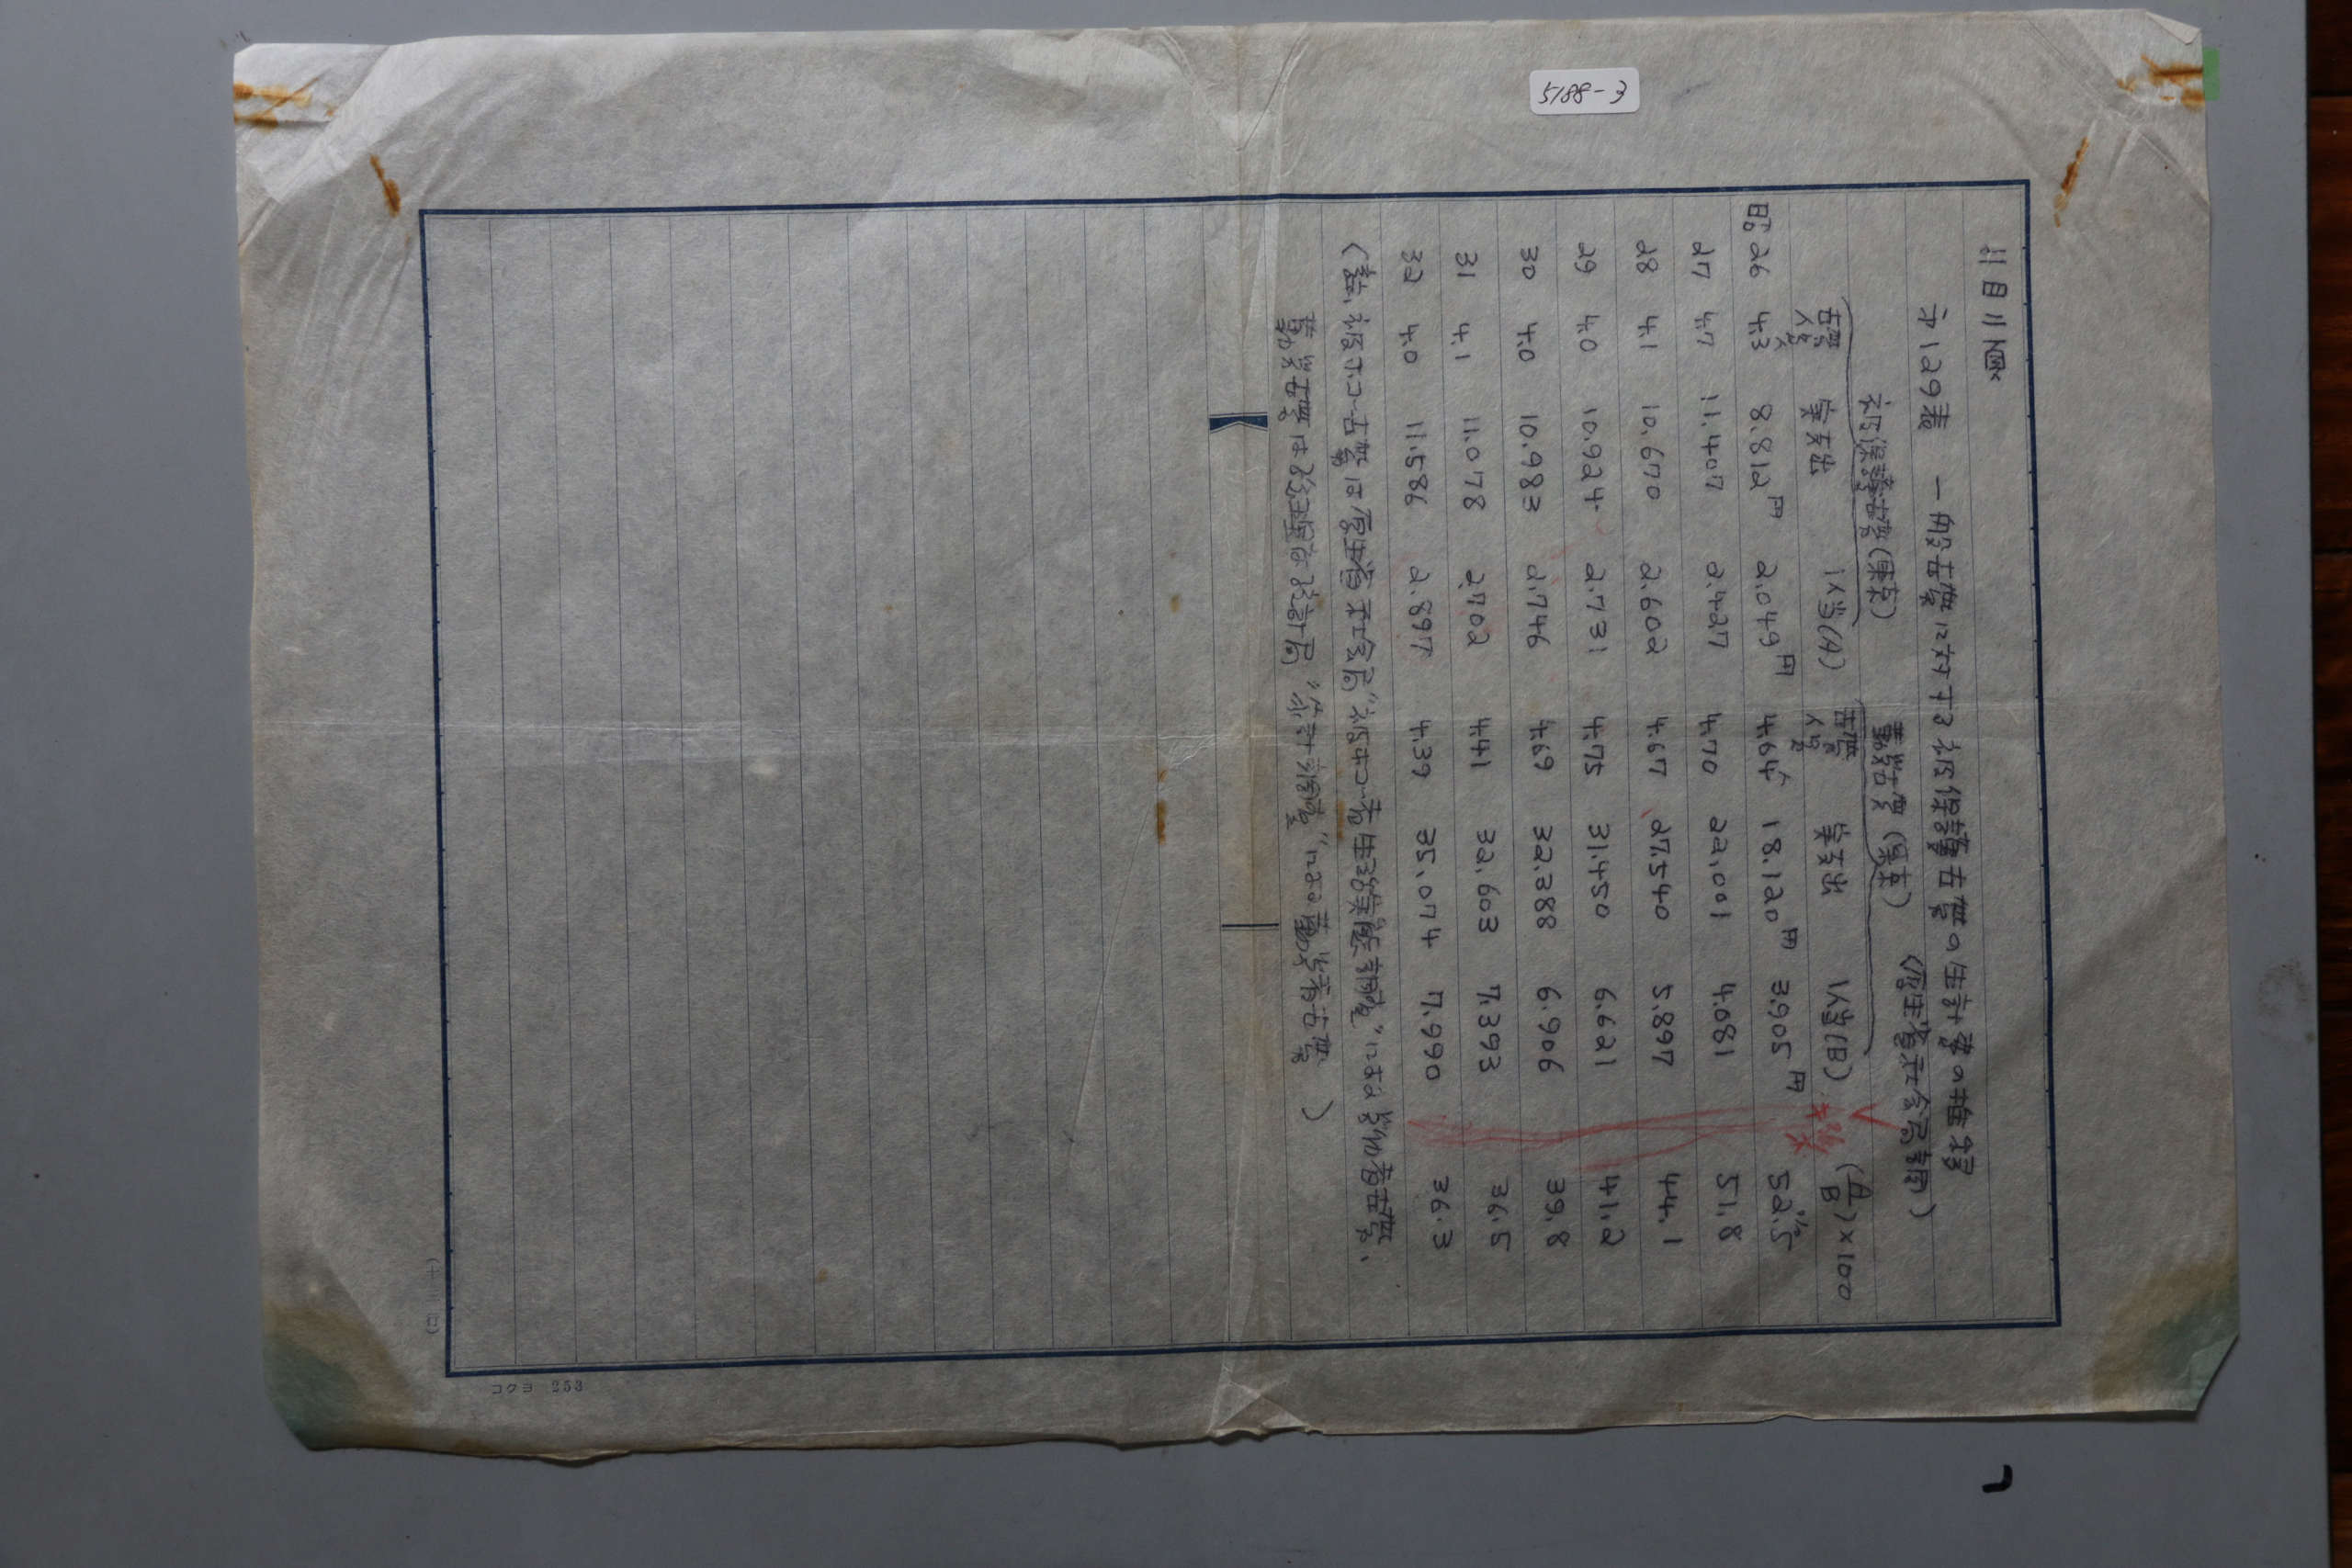 5188-3
11月11図
オ129表 一般世帯に対する被保護世帯の生計費の推移
(厚生省社会局調)
被保護世帯(東京) 勤労世帯(東京)
世帯人員 実支出 1人当(A) 世帯人員 実支出 1人当(B) (A/B)×100
昭26 4.3人 8.812円 2.049円 4.64人 18.120円 3.905円 52.5%
27 4.7 11.407 2.427 4.70 22.001 4.681 51.8
28 4.1 10.670 2.602 4.67 27.540 5.897 44.1
29 4.0 10.924 2.731 4.75 31.450 6.621 41.2
30 4.0 10.983 2.746 4.69 32.388 6.906 39.8
31 4.1 11.078 2.702 4.41 32.603 7.393 36.5
32 4.0 11.586 2.897 4.39 35.074 7.990 36.3
世帯は厚生省社会局"被保護者生活実態調査"による労働者世帯、
勤労世帯は総理府統計局"家計調査"による勤労者世帯)
コクヨ 253